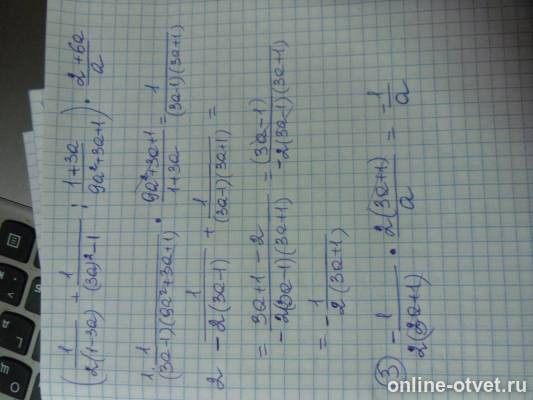 (1/(2(1-3a)) + 1/((3a)²-1) : (1+3a)/(9a²+3a+1)) · (2+6a)/a
1. 1/((3a-1)(9a²+3a+1)) · (9a²+3a+1)/(1+3a) = 1/((3a-1)(3a+1))
2 1/(-2(3a-1)) + 1/((3a-1)(3a+1)) =
= (3a+1-2)/(-2(3a-1)(3a+1)) = (3a-1)/(-2(3a-1)(3a+1))
= -1/(2(3a+1))
3) -1/(2(3a+1)) · 2(3a+1)/a = -1/a
online-otvet.ru